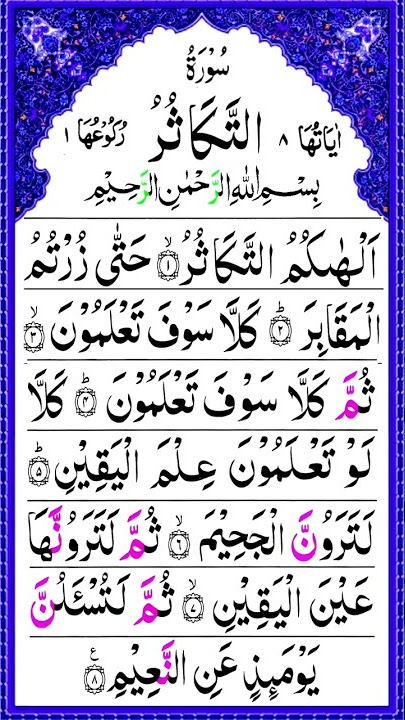 سُوْرَةُ
اٰيَاتُهَا ٨ التَّكَاثُرُ رُكُوْعُهَا ١
بِسْمِ اللهِ الرَّحْمٰنِ الرَّحِيْمِ
اَلْهٰىكُمُ التَّكَاثُرُ ۙ﴿۱﴾ حَتّٰى زُرْتُمُ
الْمَقَابِرَ ؕ﴿۲﴾ كَلَّا سَوْفَ تَعْلَمُوْنَ ۙ﴿۳﴾
ثُمَّ كَلَّا سَوْفَ تَعْلَمُوْنَ ؕ﴿۴﴾ كَلَّا
لَوْ تَعْلَمُوْنَ عِلْمَ الْيَقِيْنِ ؕ﴿۵﴾
لَتَرَوُنَّ الْجَحِيْمَ ۙ﴿۶﴾ ثُمَّ لَتَرَوُنَّهَا
عَيْنَ الْيَقِيْنِ ۙ﴿۷﴾ ثُمَّ لَتُسْـَٔلُنَّ
يَوْمَىِٕذٍ عَنِ النَّعِيْمِ ﴿۸﴾ ع